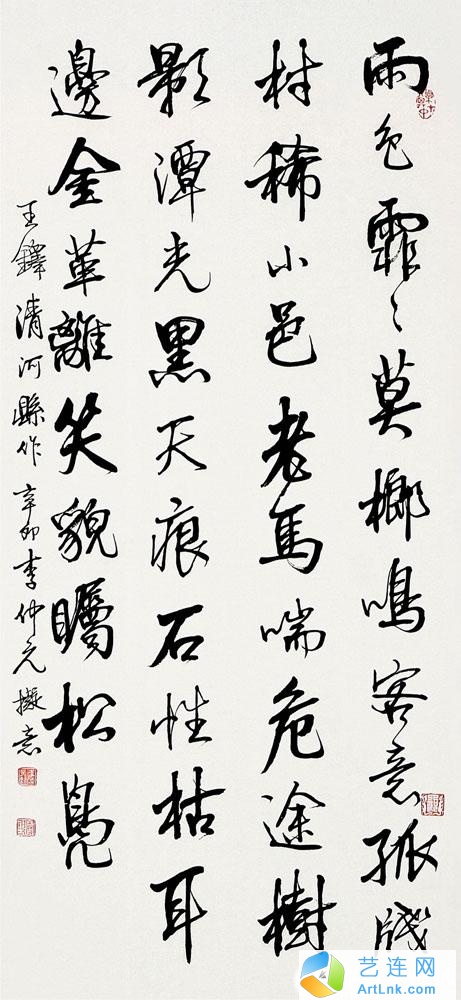 雨色霏〻莫榔鳴客意孤殘
村稀小邑老馬喘危途樹
影潭光黑天痕石性枯耳
邊金革離笑貌矚松鳧
王鐸清河縣作 辛卯李仲元擬意
艺连网
ArtLnk.com